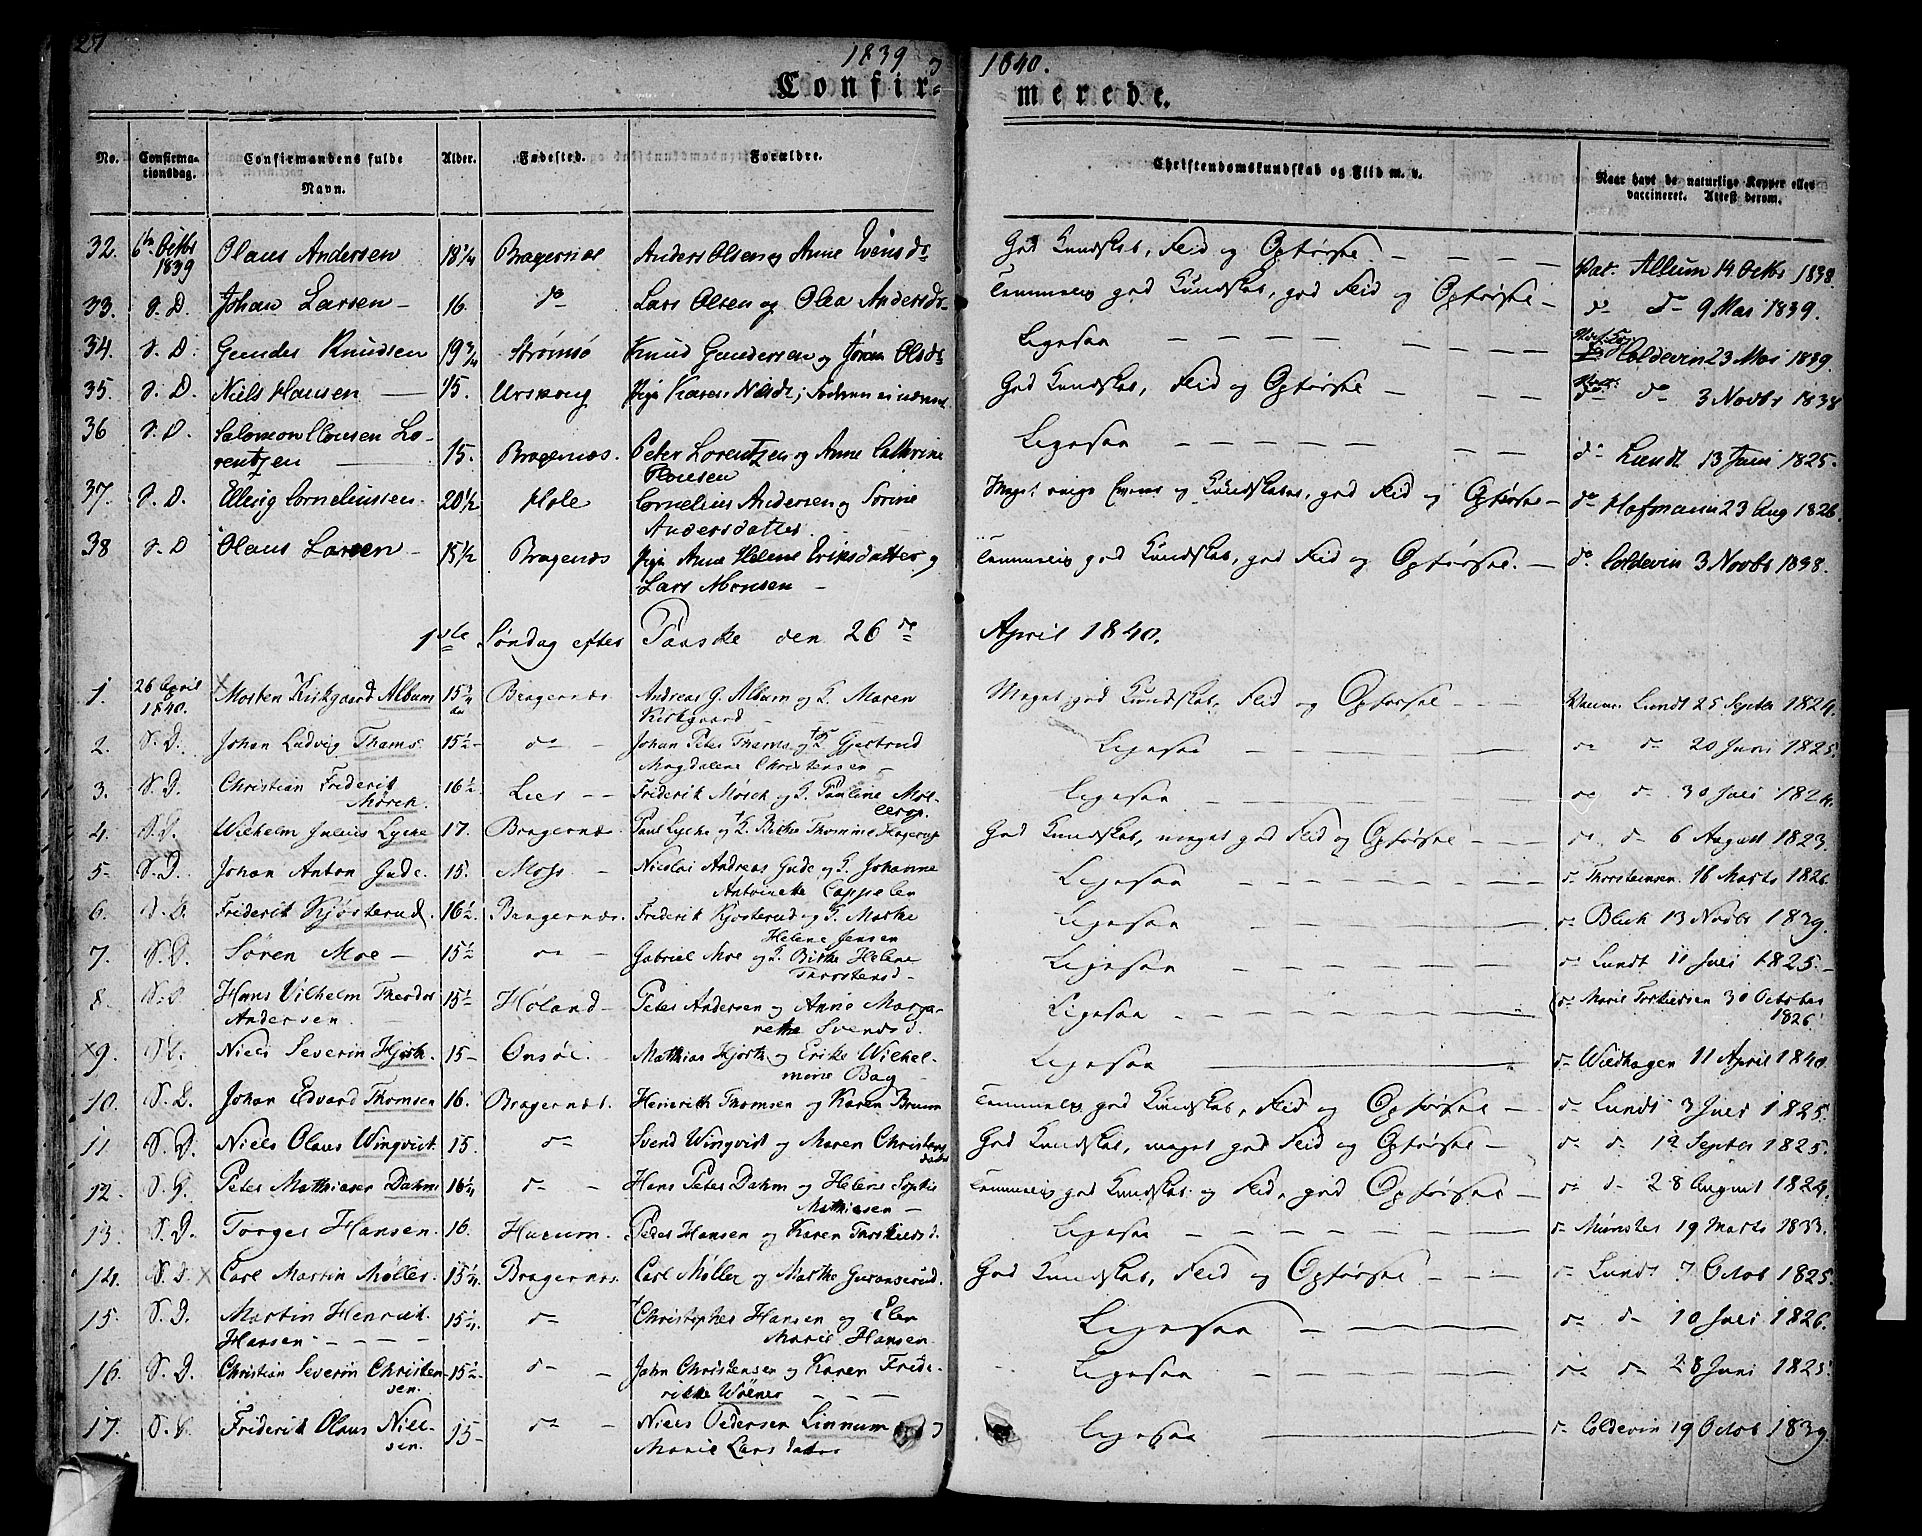 1839 1840.
Confir= merede.
No. Confirmationsdag. Confirmandens fulde Navn. Alder. Fødested. Forældre. Christendomskundskab og Flid m. v. Naar havt de naturlige Kopper eller vaccineret. Attest derom.
32. 6te Octbr 1839 Olaus Andersen 18 1/4 Bragernæs Anders Olsen og Anne Ivensdr God Kundskab, Flid og Opførsel Vac. Allum 14 Octbr 1838.
33. S. D. Johan Larsen 16. do Lars Olsen og Olea Andersdr Temmelig god Kundskab, god Flid og Opførsel do do 9 Mai 1839.
34. S. D. Gunder Knudsen 19 3/4 Strømsø Knud Gundersen og Jøran Olsdr Ligesaa Coldevin 23 Mai 1839.
35. S. D. Niels Hansen 15. Urskoug Pige Karen Nilsdr; Faderen ei nævnt God Kundskab, Flid og Opførsel do do 3 Novbr 1838
36 S. D. Salomon Clousen Lorentzen 15. Bragernæs. Peter Lorentzen og Anne Cathrine Clousen Ligesaa do Lundt 13 Juni 1825.
37. S. D. Elling Corneliussen 20 1/2 Hole Cornelius Andersen og Sørine Andersdatter Meget ringe Evner og Kundskaber, god Flid og Opførsel do Hofmann 23 Aug 1826.
38 S. D Olaus Larsen 15 1/2 Bragernæs Pige Anne Helene Eriksdatter og Lars Monsen Temmelig god Kundskab, god Flid og Opførsel. do Coldevin 3 Novbr 1838.
1ste Søndag efter Paaske den 26de April 1840.
1. 26 April 1840. Morten Kirkgaard Album 15 1/4 Bragernæs Andreas G. Album og K. Maren Kirkgaard Meget god Kundskab, Flid og Opførsel Vaccin. Lundt 25 Septbr 1824.
2. S. D. Johan Ludvig Thams 15 1/2 do Johan Peter Thams og K. Gjertrud Magdalene Christensen Ligesaa do do 20 Juni 1825.
3. S. D. Christian Friderik Mørch. 16 1/2 Lier Friderik Mørch og K. Pauline Møllerop. Ligesaa do do 30 Juli 1824.
4. S. D. Wilhelm Julius Lyche 17. Bragernæs Paul Lyche og K. Birthe Thomine Hagerup God Kundskab, meget god Flid og Opførsel do do 6 August 1823.
5 S. D. Johan Anton Gude. 15. Moss Nicolai Andreas Gude og K. Johanne Antoinette Cappelen Ligesaa do Thorsteinsen 16 Marts 1826.
6. S. D. Friderik Kjøsterud. 16 1/2. Bragernæs. Friderik Kjøsterud og K. Marthe Helene Jensen Ligesaa do Blich 13 Novbr 1839.
7. S. D. Søren Moe 15 1/2 do Gabriel Moe og K. Birthe Helene Thorstensd Ligesaa do Lundt 11 Juli 1825.
8. S. D. Hans Vilhelm Theodor Andersen 15 1/2 Høland Peter Andersen og Anne Margarethe Svendsd. Ligesaa do Marie Torkildsen 30 October 1826.
x9. S. D. Niels Severin Hjorth. 15 Onsøe. Matthias Hjorth og Erike Wilhelmine Bag Ligesaa do Wildhagen 11 April 1840.
10. S. D. Johan Edvard Thomsen 16. Bragernæs. Heinerich Thomsen og Karen Bruun Temmelig god Kundskab, Flid og Opførsel do Lundt 3 Juli 1825.
11 S. D. Niels Olaus Winqvist. 15. do Svend Winqvist og Maren Christensdatter God Kundskab, meget god Flid og Opførsel do do 12 Septbr 1825.
12. S. D. Peter Mathiesen Dahm 16 1/4 do Hans Peter Dahm og Helene Sophie Mathiesen Temmelig god Kundskab og Flid, god Opførsel do do 28 August 1824.
13. S. D. Torger Hansen. 16. Hurum. Peder Hansen og Karen Thorkildsd. Ligesaa do Münster 19 Marts 1833.
14. S. D. x Carl Martin Møller. 15 1/4. Bragernæs. Carl Møller og Marthe Guransrud. God Kundskab, Flid og Opførsel do Lundt 7 Octob 1825.
15. S. D. Martin Henrik Hansen 15 1/4. do Christopher Hansen og Elen Marie Hansen Ligesaa do do 10 Juli 1826.
16. S. D. Christian Severin Christensen. 15 1/2 do John Christensen og Karen Friderikke Wølner Ligesaa do do 28 Juni 1825.
17. S. D. Friderik Olaus Nielsen. 15 do Niels Pedersen Linnum og Marie Larsdatter Ligesaa do Coldevin 19 Octob 1839.